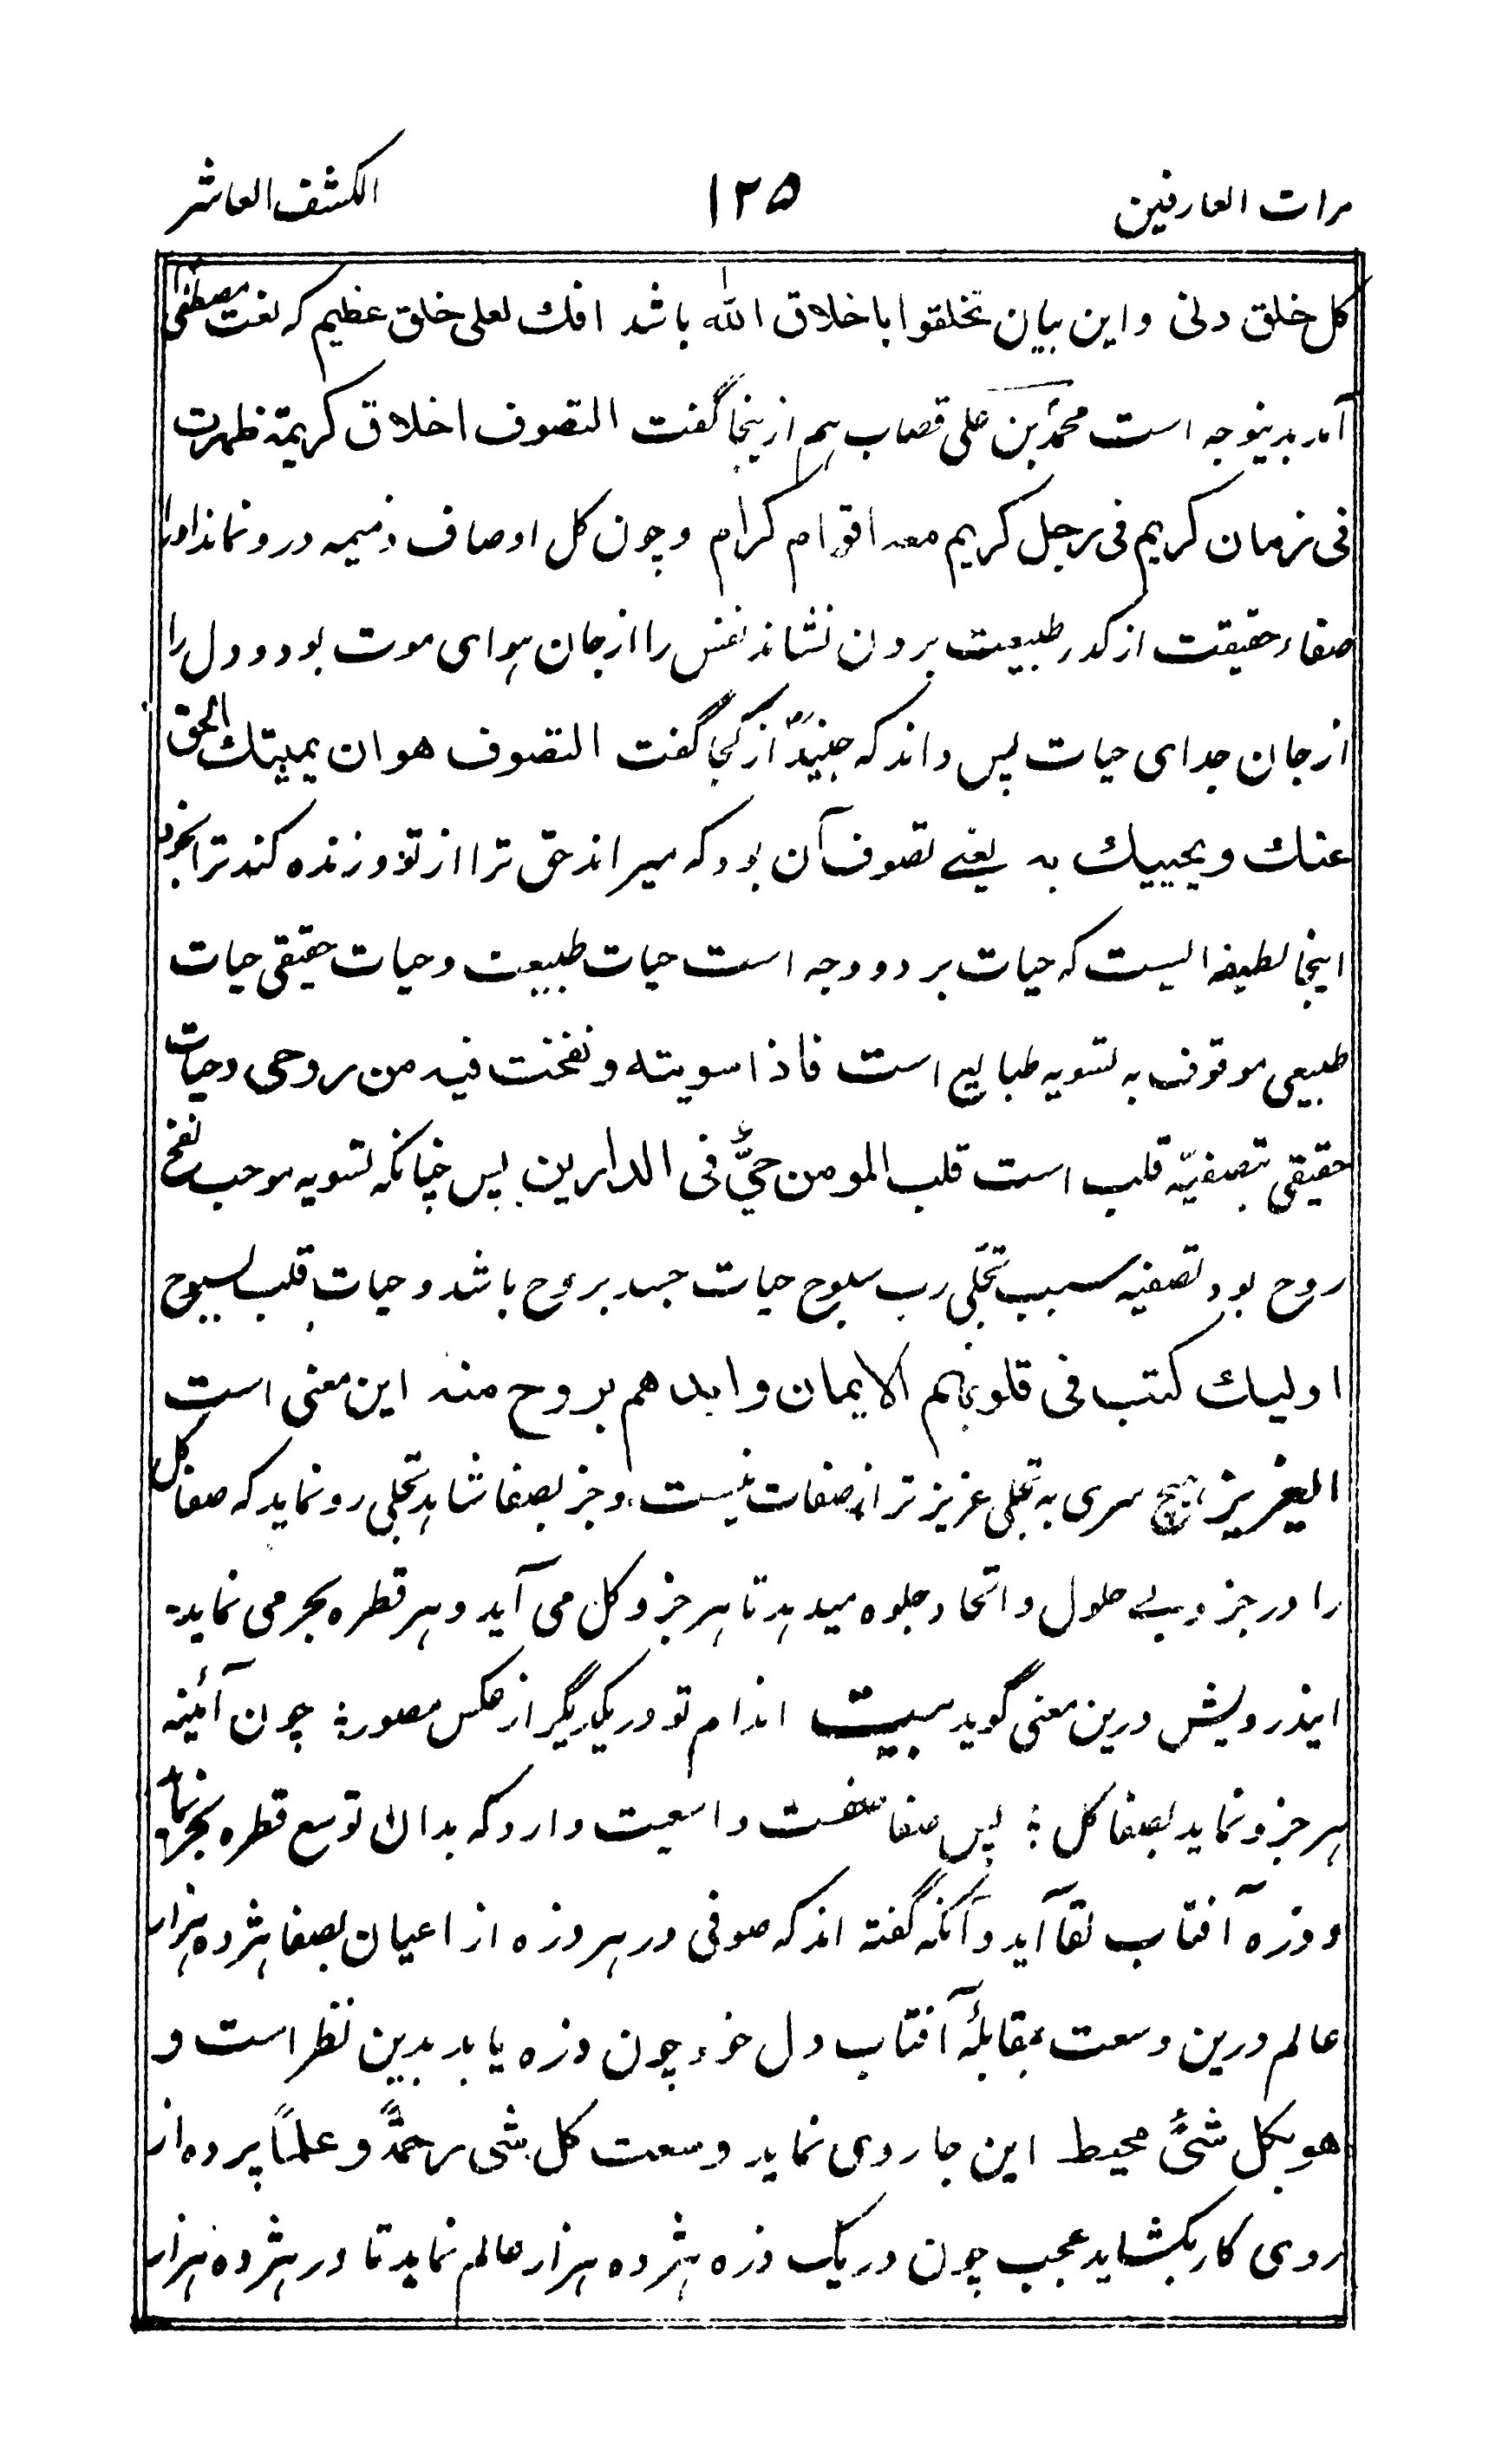 مرات العارفین ۱۲۵ الکشف العاشر
کل خلق دنی و این بیان تخلقوا باخلاق الله باشد انک لعلی خلق عظیم که نعت مصطفی
آمد بدینوجه است محمد بن علی قصاب هم ازینجا گفت التصوف اخلاق کریمة ظهرت
فی زمان کریم فی رجل کریم معه اقوام کرام و چون کل اوصاف ذمیمه درو نماند او را
صفاء حقیقت از کدر طبیعت برون نشاند نفس را از جان هوای موت بود و دل را
از جان جدای حیات پس داند که جنیدؒ از کجا گفت التصوف هو ان یمیتک الحق
عنک و یحییک به یعنے تصوف آن بود که میراند حق ترا از تو و زنده کند ترا بخود
اینجا لطیفه ایست که حیات بر دو وجه است حیات طبیعت و حیات حقیقی حیات
طبیعی موقوف به تسویه طبایع است فاذا سویته و نفخت فیه من روحی و حیات
حقیقی بتصفیّه قلب است قلب المومن حیٌّ فی الدارین پس چنانکه تسویه موجب نفخ
روح بود تصفیه سبب تجلّی رب سبوح حیات جسد بروح باشد و حیات قلب بسبوح
اولیک کتب فی قلوبهم الایمان و ایدهم بروح منه این معنی است
العزیز هیچ سری به تجلی عزیز تر از صفات نیست و جز بصفا شاهد تجلی رو نماید که صفا کل
را در جزو بے حلول و اتحاد جلوه میدهد تا هر جزو کل می آید و هر قطره بحر می نماید
ایندرویش درین معنی گوید بیت اندام تو در یکدیگر از عکس مصور ؛ چون آئینه
هر جزو نماید بصفا کل ؛ پس صفا صفت واسعیت دارد که بدان توسع قطره بحر نما
و ذره آفتاب لقا آید و آنکه گفته اند که صوفی در هر ذره از اعیان بصفا هژده هزار
عالم درین وسعت بمقابلهٔ آفتاب دل خود چون ذره یابد بدین نظر است و
هو بکل شئ محیط این جا روی نماید وسعت کل شی رحمةً و علماً پرده از
روی کار بکشاید عجب چون در یک ذره هژده هزار عالم نماید تا در هژده هزار